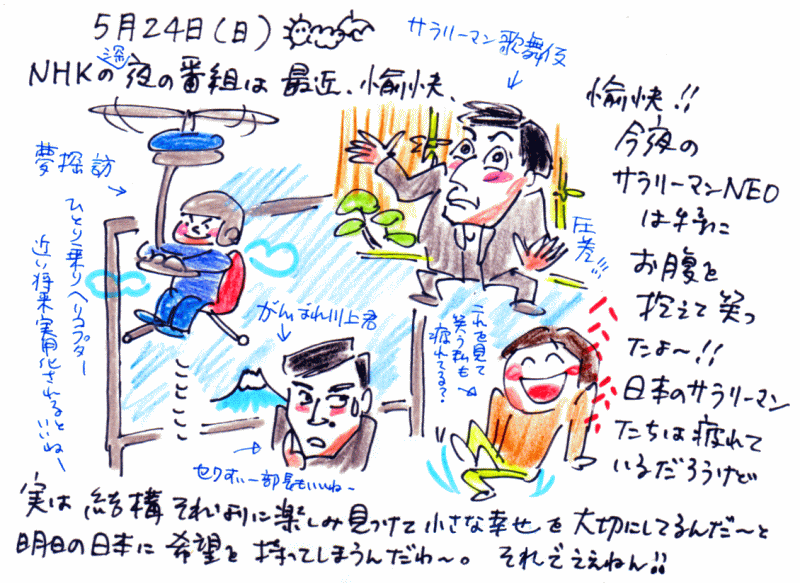 5月24日(日)
NHKの深夜の番組は最近、愉快、
サラリーマン歌舞伎
愉快!!
今夜の
サラリーマンNEO
は特に
お腹を
抱えて笑っ
たよ〜!!
日本のサラリーマン
たちは疲れて
いるだろうけど
夢探訪
ひとり乗りヘリコプター
近い将来実用化されると
いいね〜
圧巻!!!
がんばれ川上君
これを見て
笑う私も
疲れてる?
セクすぃー部長もいいねー
実は結構それなりに楽しみ見つけて小さな幸せを大切にしてるんだ〜と
明日の日本に希望を持ってしまうんだわ〜。それでええねん!!